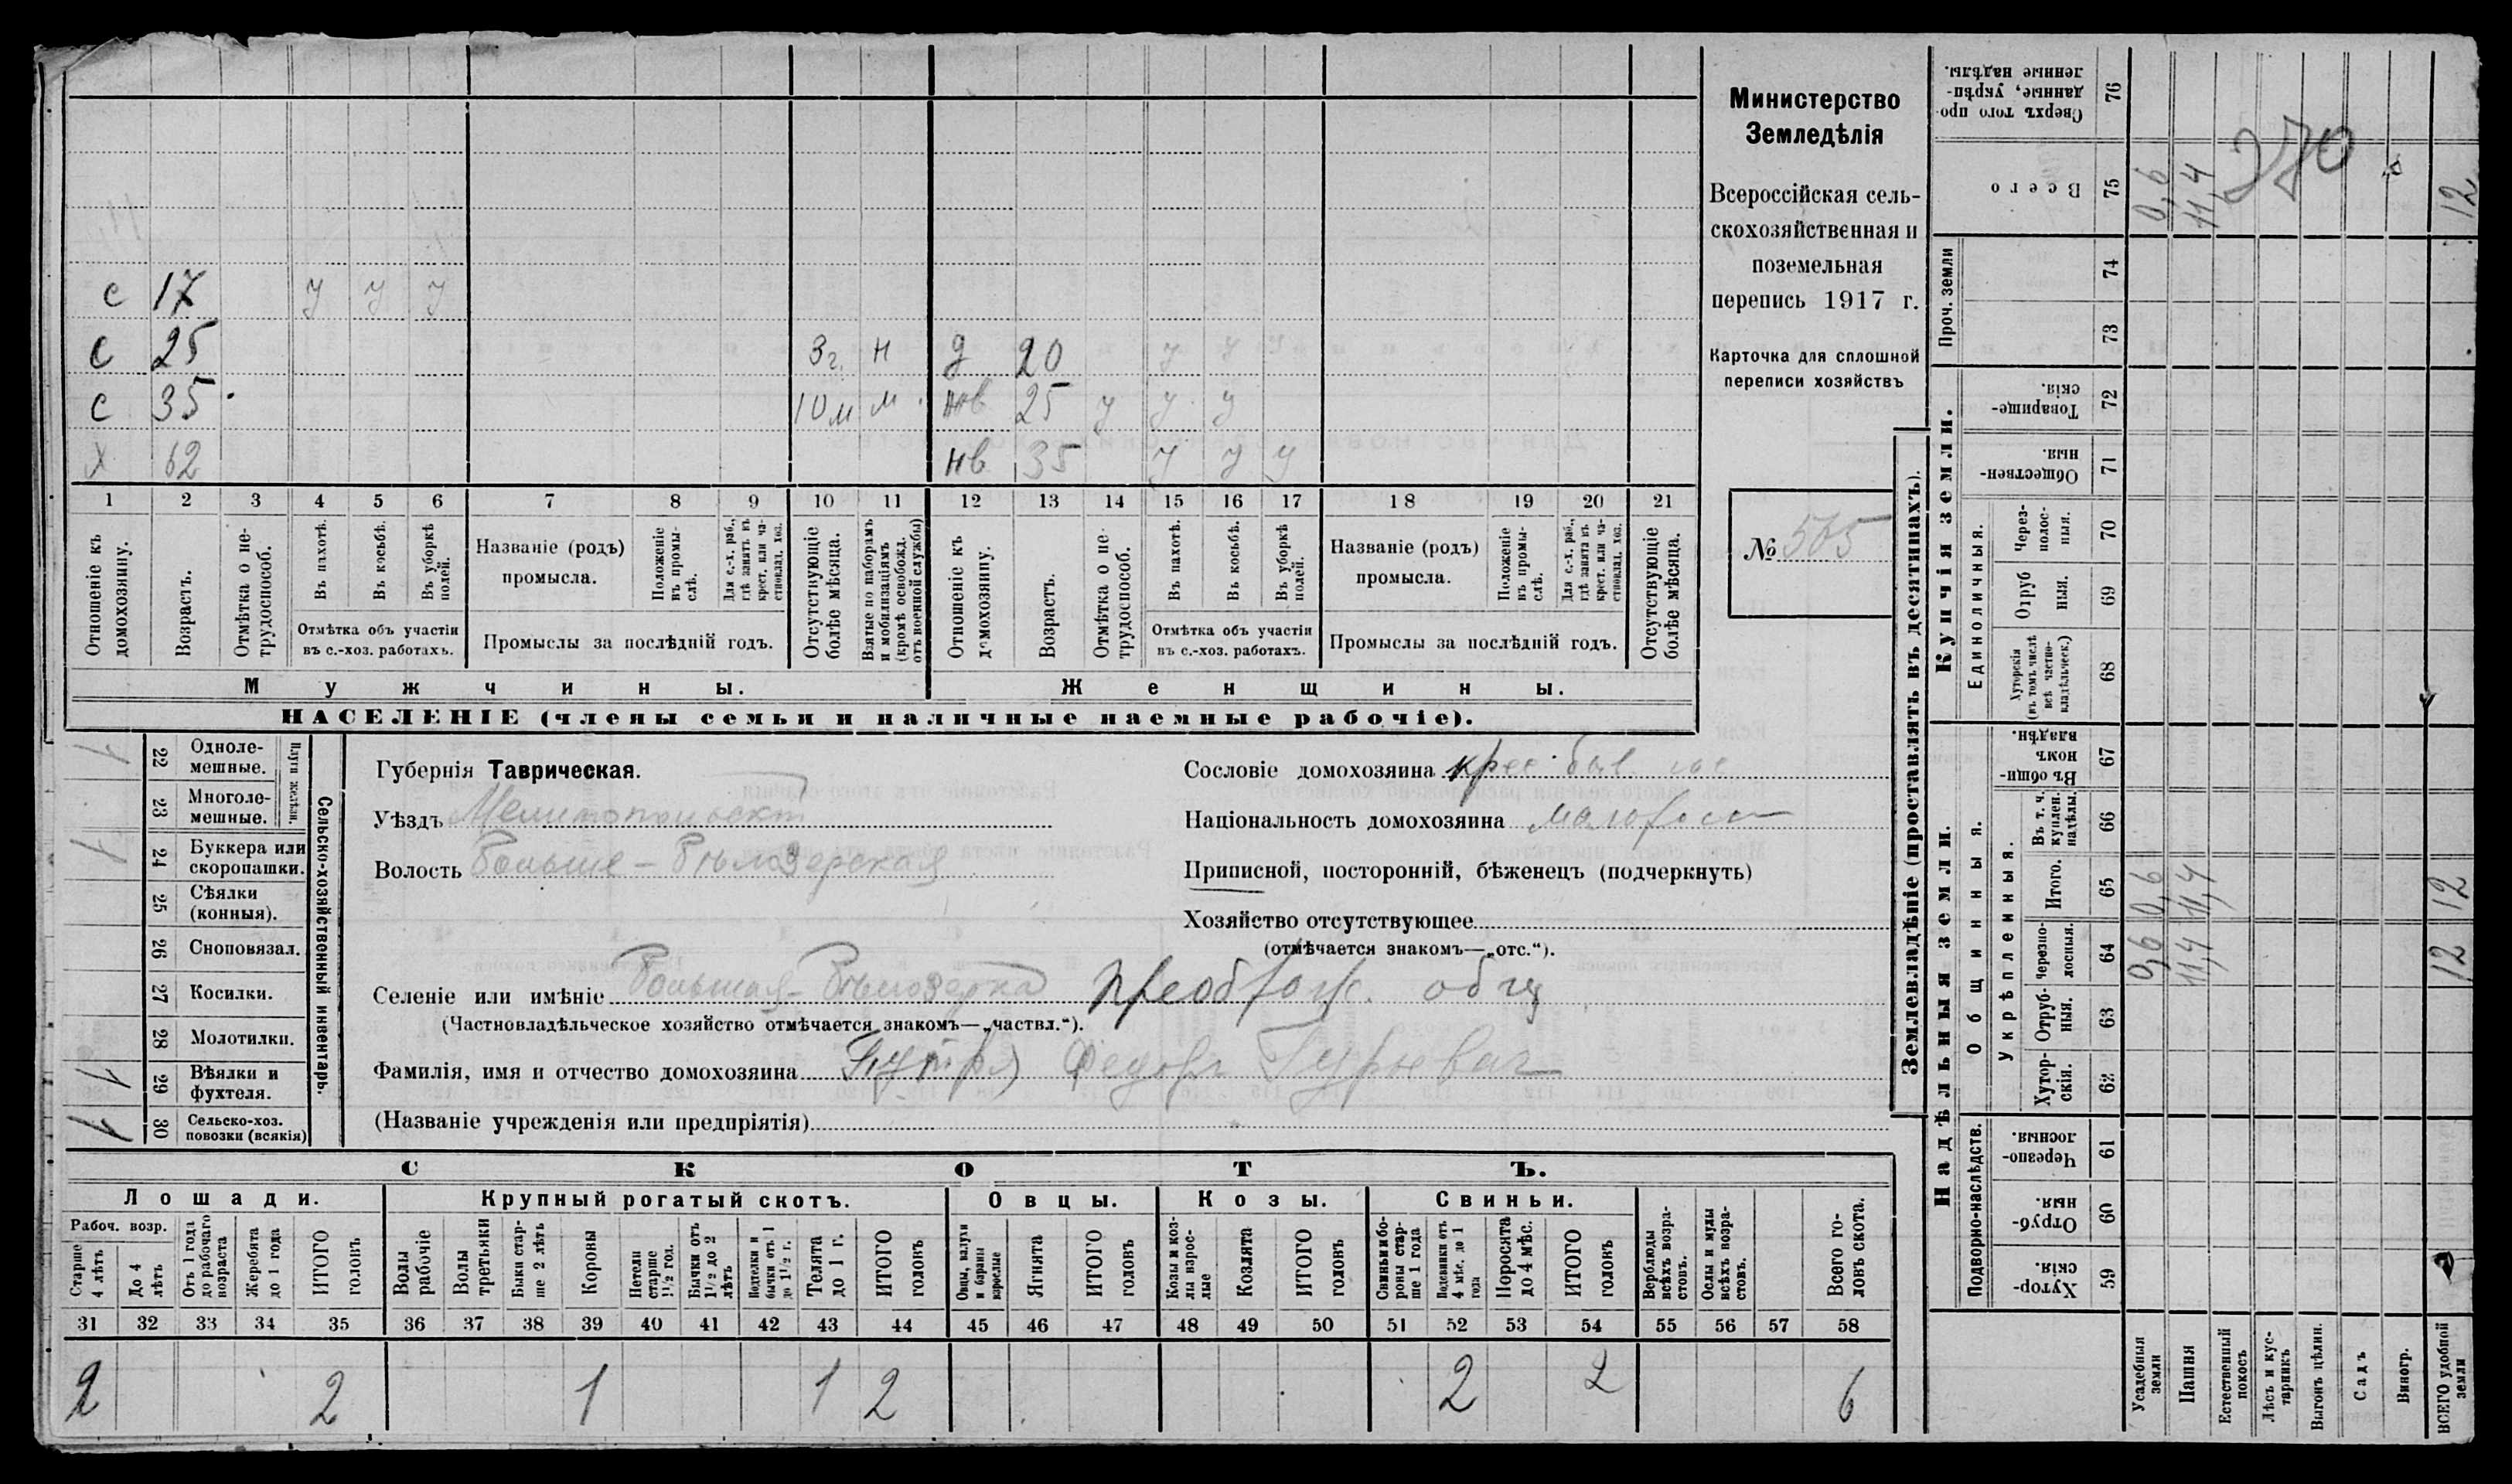 Министерство
Земледѣлія
Всероссійская сель-
скохозяйственная и
поземельная
перепись 1917 г.
Карточка для сплошной
переписи хозяйствъ
№ 505
с 17 у у у
с 25 3 г. н д 20 у у
с 35 10 м м нв 25 у у у
х 62 нв 35 у у у
1 2 3 4 5 6 7 8 9 10 11 12 13 14 15 16 17 18 19 20 21
Отношеніе къ домохозяину.
Возрастъ.
Отмѣтка о не-трудоспособ.
Въ пахотѣ.
Въ косьбѣ.
Въ уборкѣ полей.
Отмѣтка объ участіи въ с.-хоз. работахъ.
Названіе (родъ) промысла.
Положеніе въ промы-слѣ.
Для с.-х. раб., гдѣ занятъ въ крест. или ча-стновлад. хоз.
Промыслы за послѣдній годъ.
Отсутствующіе болѣе мѣсяца.
Взятые по наборамъ и мобилизаціямъ (кромѣ освобожд. отъ военной службы)
Отношеніе къ домохозяину.
Возрастъ.
Отмѣтка о не-трудоспособ.
Въ пахотѣ.
Въ косьбѣ.
Въ уборкѣ полей.
Отмѣтка объ участіи въ с.-хоз. работахъ.
Названіе (родъ) промысла.
Положеніе въ промы-слѣ.
Для с.-х. раб., гдѣ занята въ крест. или ча-стновлад. хоз.
Промыслы за послѣдній годъ.
Отсутствующіе болѣе мѣсяца.
Мужчины. Женщины.
НАСЕЛЕНІЕ (члены семьи и наличные наемные рабочіе).
Сельско-хозяйственный инвентарь.
Плуги желѣзн.
22 Одноле-мешные. 1
23 Многоле-мешные.
24 Буккера или скоропашки. 1
25 Сѣялки (конныя).
26 Сноповязал.
27 Косилки.
28 Молотилки.
29 Вѣялки и фухтеля. 1
30 Сельско-хоз. повозки (всякія) 1
Губернія Таврическая.
Уѣздъ Мелитопольскій
Волость Больше-Бѣлозерская
Сословіе домохозяина крес быв гос
Національность домохозяина малорос
Приписной, посторонній, бѣженецъ (подчеркнуть)
Хозяйство отсутствующее
(отмѣчается знакомъ—„отс.“).
Селеніе или имѣніе Большая-Бѣлозерка Преображ. общ
(Частновладѣльческое хозяйство отмѣчается знакомъ—„частвл.“).
Фамилія, имя и отчество домохозяина Федоръ Гурьевич
(Названіе учрежденія или предпріятія)
СКОТЪ.
Лошади. Крупный рогатый скотъ. Овцы. Козы. Свиньи.
Рабоч. возр.
Старше 4 лѣтъ
До 4 лѣтъ
Отъ 1 года до рабочаго возраста
Жеребята до 1 года
ИТОГО головъ
Волы рабочіе
Волы третьяки
Быки стар-ше 2 лѣтъ
Коровы
Нетели старше 1½ год.
Бычки отъ 1½ до 2 лѣтъ
Подтелки и бычки отъ 1 до 1½ г.
Телята до 1 г.
ИТОГО головъ
Овцы, валухи и бараны взрослые
Ягнята
ИТОГО головъ
Козы и коз-лы взрос-лые
Козлята
ИТОГО головъ
Свиньи и бо-ровы стар-ше 1 года
Подсвинки отъ 4 мѣс. до 1 года
Поросята до 4 мѣс.
ИТОГО головъ
Верблюды всѣхъ возра-стовъ.
Ослы и мулы всѣхъ возра-стовъ.
Всего го-ловъ скота.
31 32 33 34 35 36 37 38 39 40 41 42 43 44 45 46 47 48 49 50 51 52 53 54 55 56 57 58
2 2 1 1 2 2 2 6
Землевладѣніе (проставлять въ десятинахъ).
Надѣльныя земли. Купчія земли. Проч. земли
Подворно-наслѣдств.
Общинныя.
Укрѣпленныя.
Единоличныя.
Хутор-скія. 59
Отруб-ныя. 60
Черезпо-лосныя. 61
Хутор-скія. 62
Отруб-ныя. 63
Черезпо-лосныя. 64
Итого. 65
Въ т. ч. куплен. надѣлы. 66
Въ общин-номъ владѣн. 67
Хуторскія (въ томъ числѣ всѣ частно-владѣльческ.) 68
Отруб-ныя. 69
Через-полос-ныя. 70
Обществен-ныя. 71
Товарище-скія. 72
73
74
Всего 75
Сверхъ того про-данные, укрѣп-ленные надѣлы. 76
Усадебныя земли 0,6 0,6 0,6
Пашня 11,4 11,4 11,4
Естественный покосъ
Лѣсъ и кус-тарникъ
Выгонъ цѣлин.
Садъ
Виногр.
ВСЕГО удобной земли 12 12 12
270